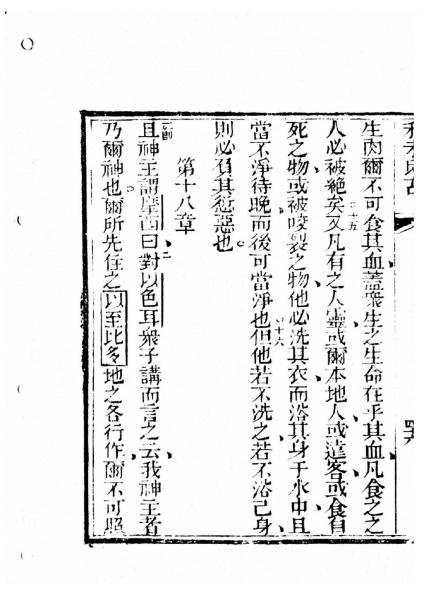 生肉爾不可食其血蓋衆生之生命在乎其血凡食之之
人必被絕矣十五又凡有之人靈或爾本地人或遠客或食自
死之物或被咬裂之物他必洗其衣而浴其身于水中且
當不淨待晚而後可當淨也十六但他若不洗之若不浴己身
則必負其愆惡也
第十八章
一節且神主謂摩西曰二對以色耳衆子講而言之云我神主者
乃爾神也爾所先住之以至比多地之各行作爾不可照